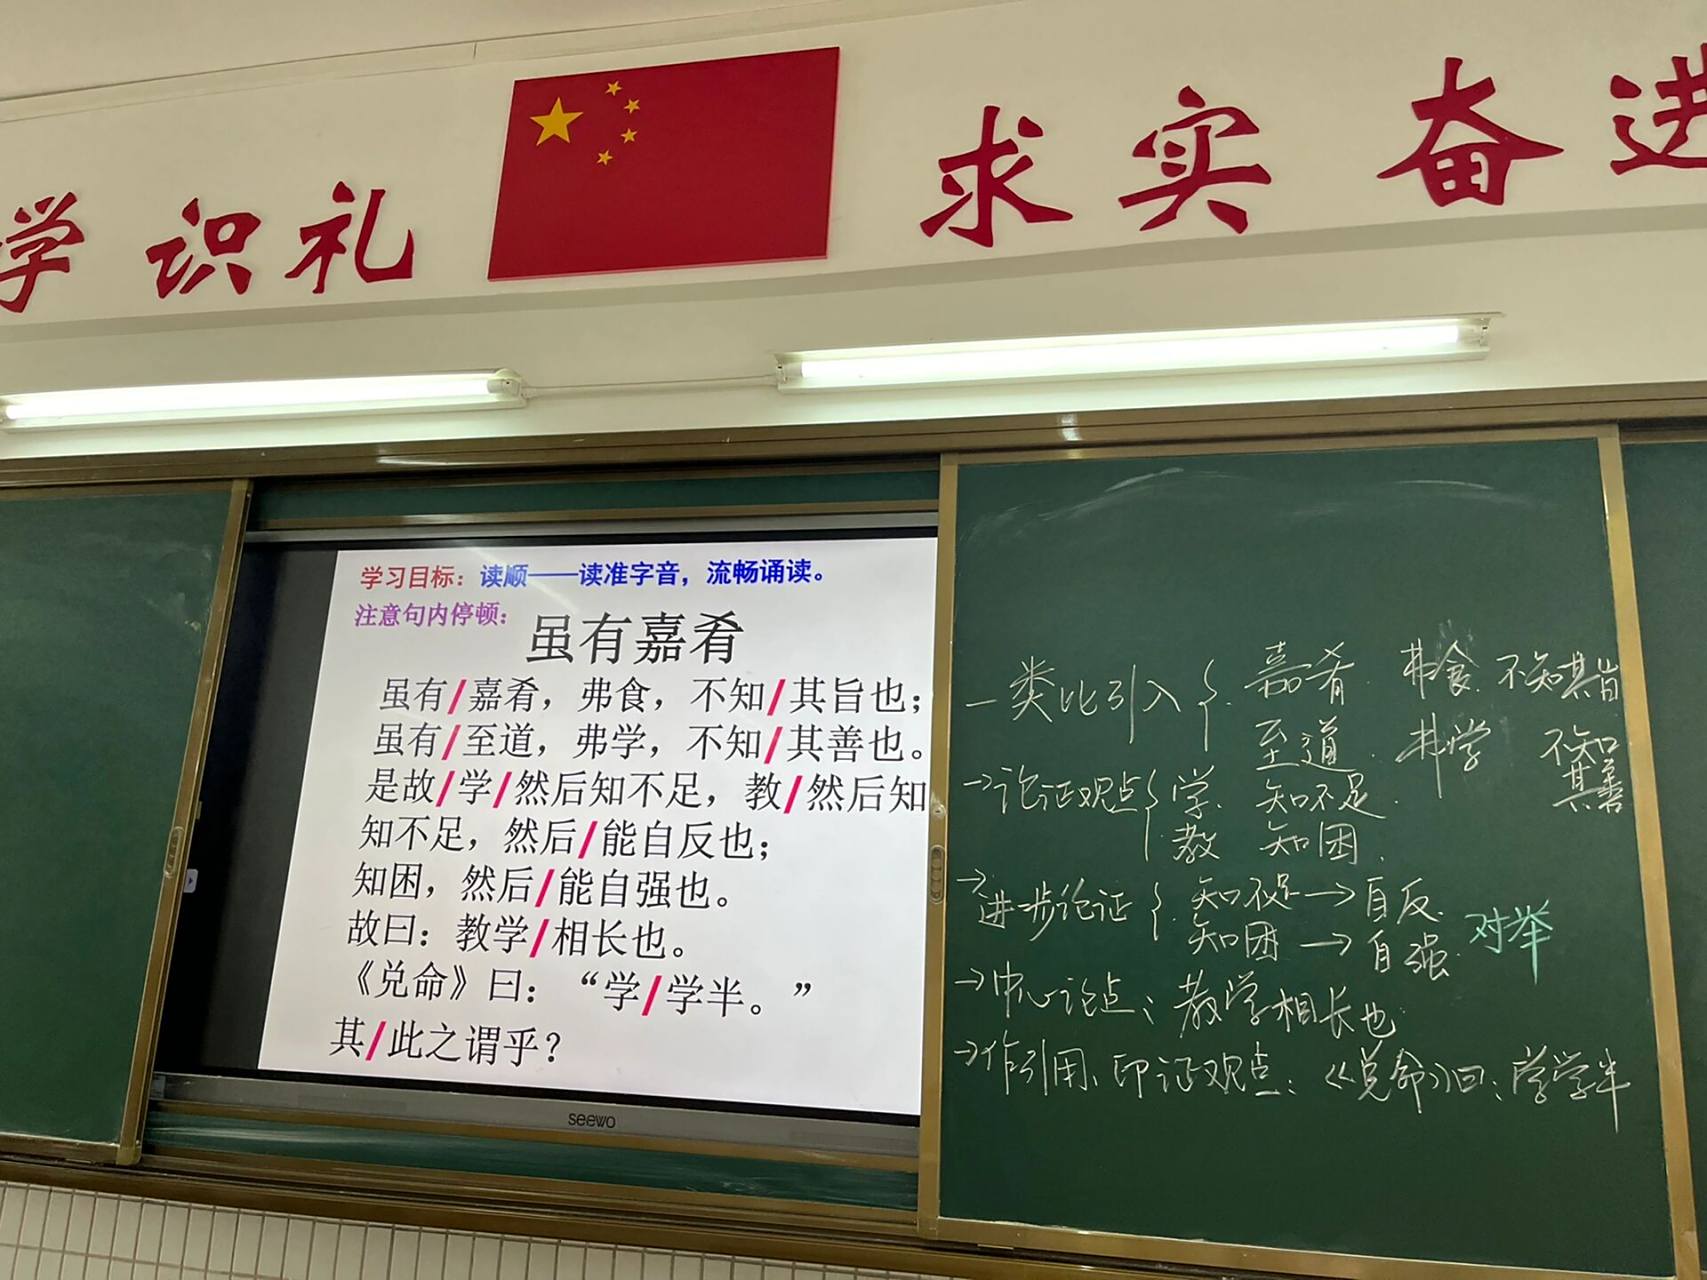 学 识 礼 求 实 奋 进
学习目标：读顺——读准字音，流畅诵读。
注意句内停顿：
虽有嘉肴
虽有/嘉肴，弗食，不知/其旨也；
虽有/至道，弗学，不知/其善也。
是故/学/然后知不足，教/然后知
知不足，然后/能自反也；
知困，然后/能自强也。
故曰：教学/相长也。
《兑命》曰：“学/学半。”
其/此之谓乎？
seewo
一类比引入{ 嘉肴. 弗食 不知其旨
至道. 弗学 不知其善
→论证观点{ 学. 知不足.
教 知困.
→进一步论证{ 知不足→自反.
知困→自强. 对举
→中心论点：教学相长也
→引用、印证观点：《兑命》曰：学学半